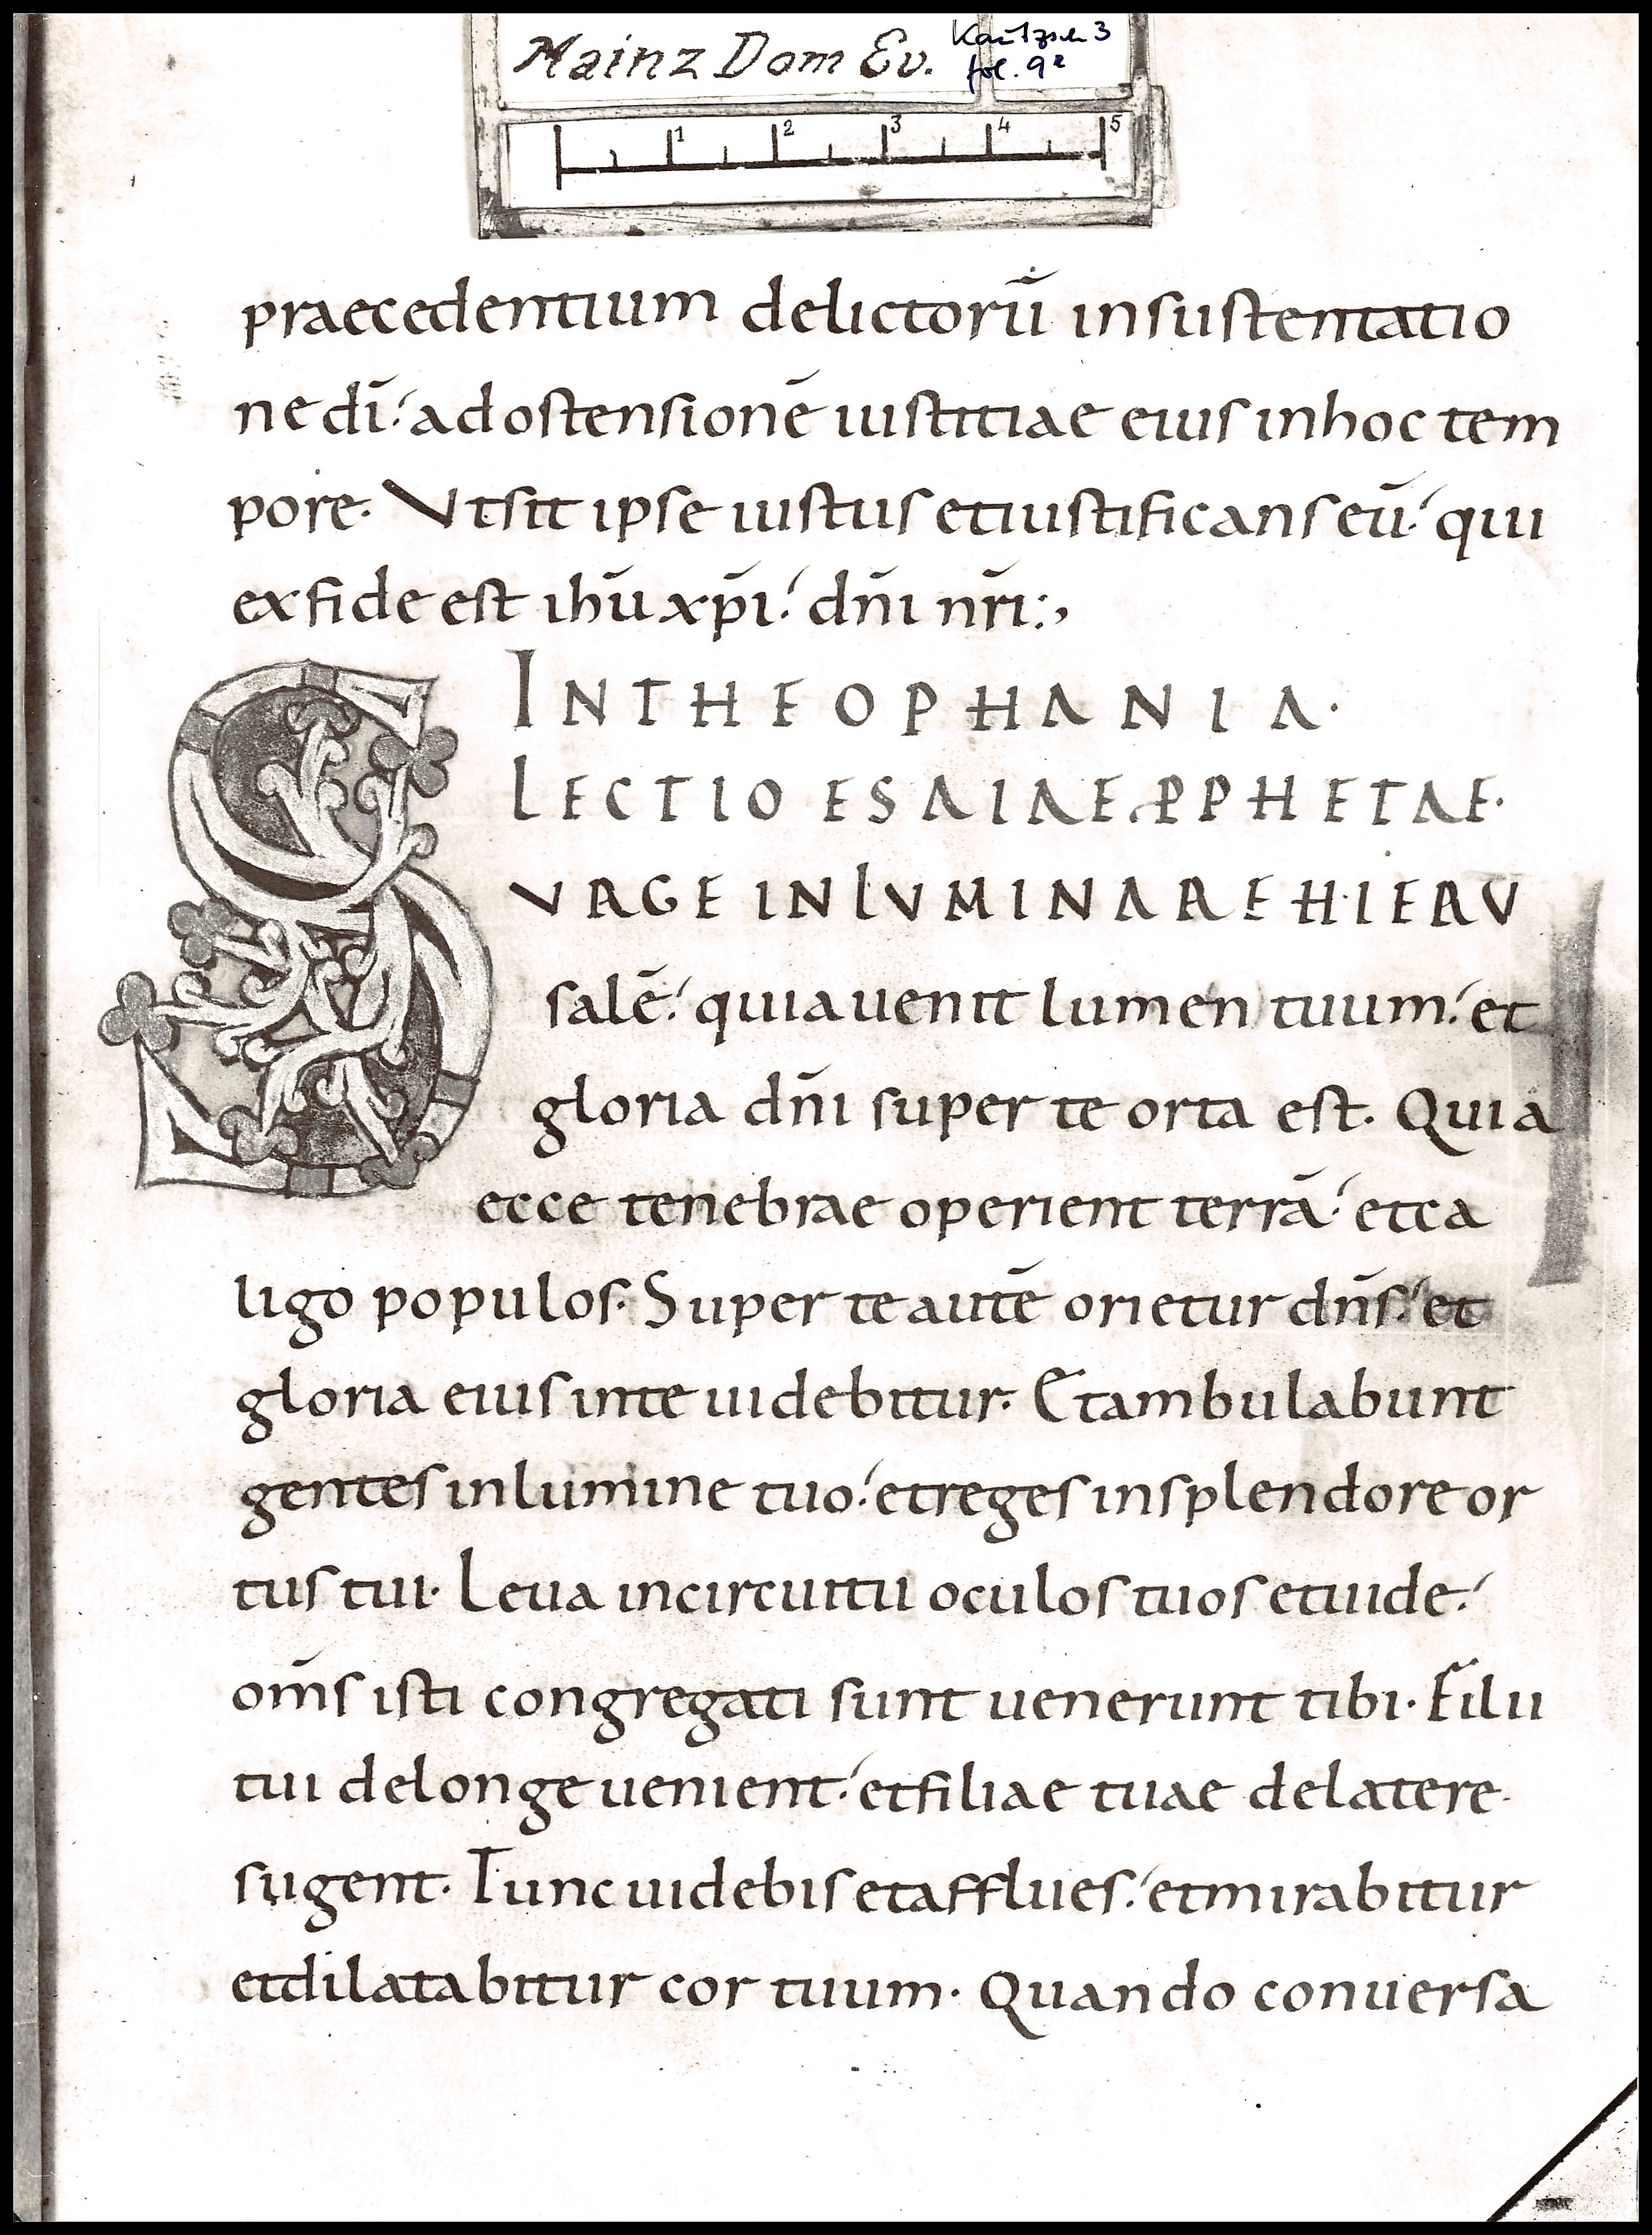 Mainz Dom Ev. Kautzsch 3
fol. 9r
1 2 3 4 5
praecedentium delictorū insustentatio
ne dī; ad ostensionē iustitiae eius inhoc tem
pore. Vt sit ipse iustus et iustificans eū; qui
ex fide est ihū xp̄i; dn̄i nr̄i:,
IN THEOPHANIA.
LECTIO ESAIAE PPHETAE.
SURGE INLUMINARE HIERU
salē; quia uenit lumen tuum; et
gloria dn̄i super te orta est. Quia
ecce tenebrae operient terrā; et ca
ligo populos. Super te autē orietur dn̄s; et
gloria eius inte uidebitur. Et ambulabunt
gentes in lumine tuo; et reges in splendore or
tus tui. Leua in circuitu oculos tuos et uide;
om̄s isti congregati sunt uenerunt tibi. Filii
tui de longe uenient; et filiae tuae de latere
sugent. Tunc uidebis et afflues; et mirabitur
et dilatabitur cor tuum. Quando conuersa